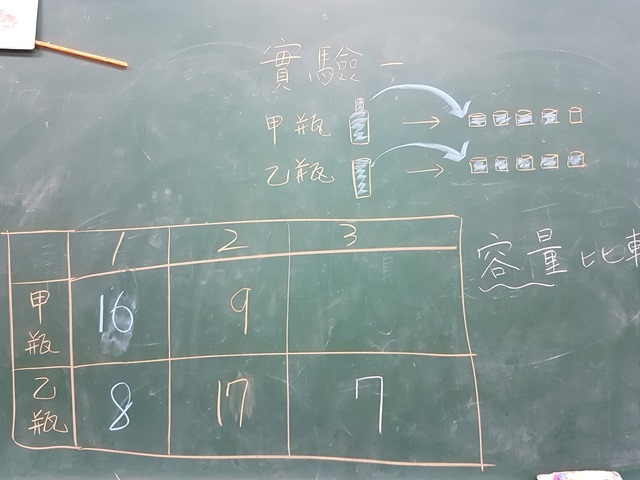 實驗一
甲瓶 →
乙瓶 →
容量比較
1 2 3
甲瓶 16 9
乙瓶 8 17 7